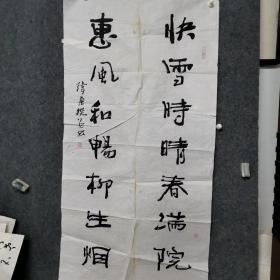 快雪時晴春滿院
惠風和暢柳生烟